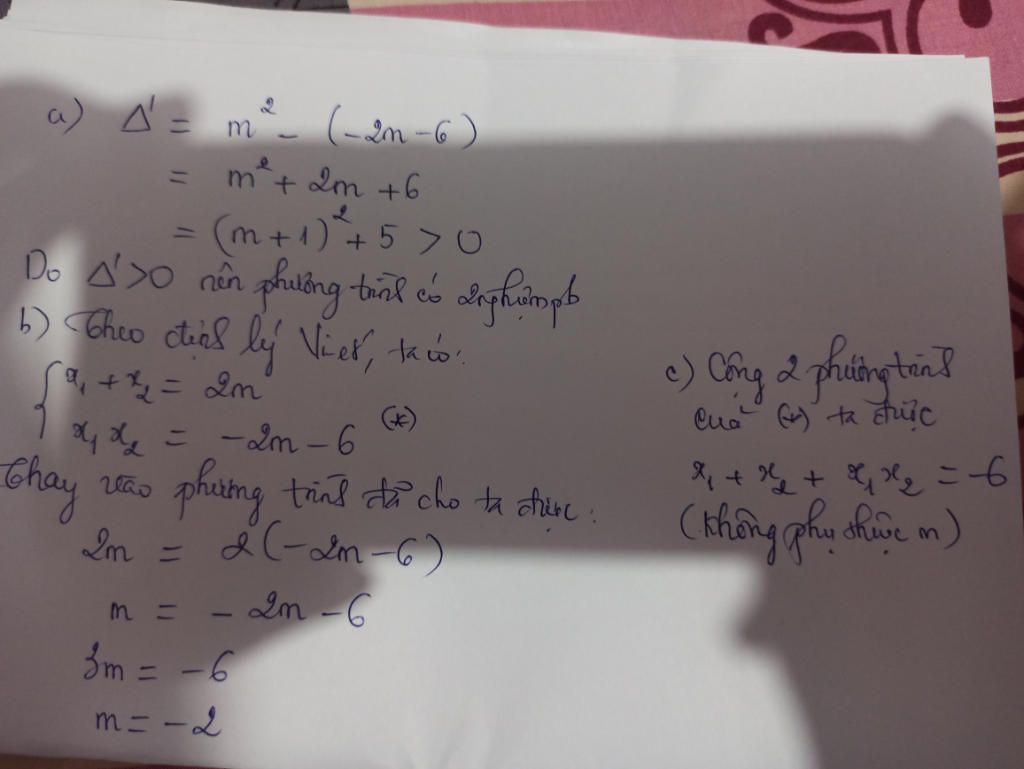 a) Δ' = m² - (-2m - 6)
= m² + 2m + 6
= (m + 1)² + 5 > 0
Do Δ' > 0 nên phương trình có 2 nghiệm pb
b) Theo định lý Viet, ta có:
x₁ + x₂ = 2m
x₁ x₂ = -2m - 6 (*)
Thay vào phương trình đã cho ta được:
2m = 2(-2m - 6)
m = -2m - 6
3m = -6
m = -2
c) Cộng 2 phương trình
của (*) ta được
x₁ + x₂ + x₁ x₂ = -6
(không phụ thuộc m)